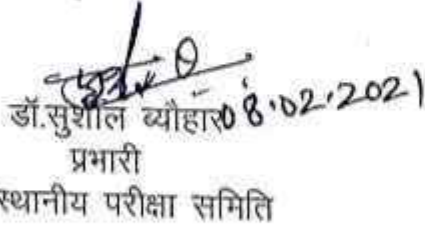 डॉ.सुशील ब्यौहार 08.02.2021
प्रभारी
स्थानीय परीक्षा समिति